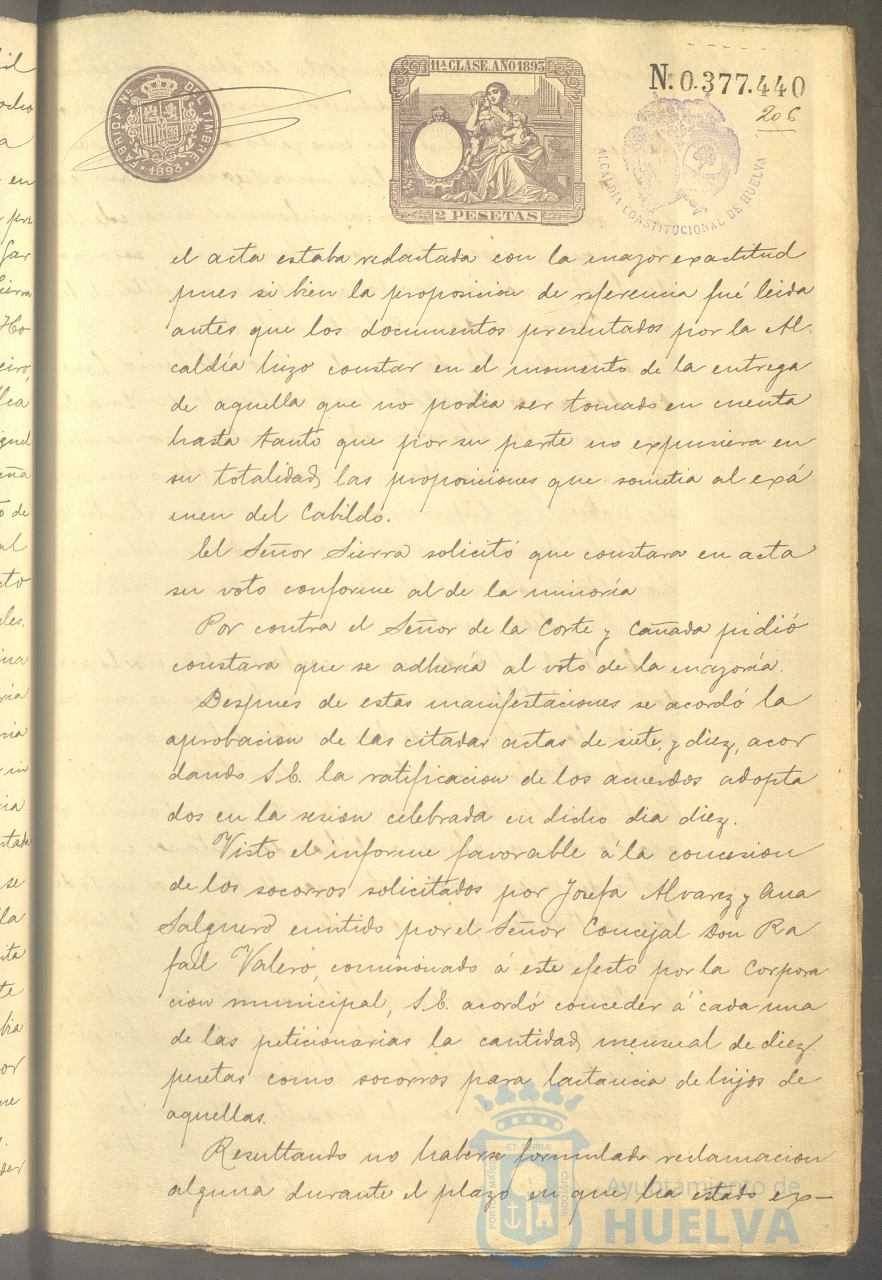 FABRICA Nal DEL TIMBRE
1893
11ª CLASE. AÑO 1893
2 PESETAS
N. 0.377.440
206
ALCALDÍA CONSTITUCIONAL DE HUELVA
el acta estaba redactada con la mayor exactitud
pues si bien la proposicion de referencia fué leida
antes que los documentos presentados por la Al
caldía hizo constar en el momento de la entrega
de aquella que no podia ser tomada en cuenta
hasta tanto que por su parte no expusiera en
su totalidad las proposiciones que sometia al exá
men del Cabildo.
El Señor Sierra solicitó que constara en acta
su voto conforme al de la minoría
Por contra el Señor de la Corte y Cañada pidió
constara que se adhería al voto de la mayoría.
Despues de estas manifestaciones se acordó la
aprobacion de las citadas actas de siete, y diez, acor
dando S.E. la ratificacion de los acuerdos adopta
dos en la sesion celebrada en dicho dia diez.
Visto el informe favorable á la concesion
de los socorros solicitados por Josefa Alvarez y Ana
Salguero emitido por el Señor Concejal Don Ra
fael Valero, comisionado á este efecto por la Corpora
cion municipal, S.E. acordó conceder á cada una
de las peticionarias la cantidad mensual de diez
pesetas como socorros para lactancia de hijos de
aquellas.
Resultando no haberse formulado reclamacion
alguna durante el plazo en que ha estado ex-
PORTUS MARIS ET TERRAE CUSTODIA
Ayuntamiento de
HUELVA